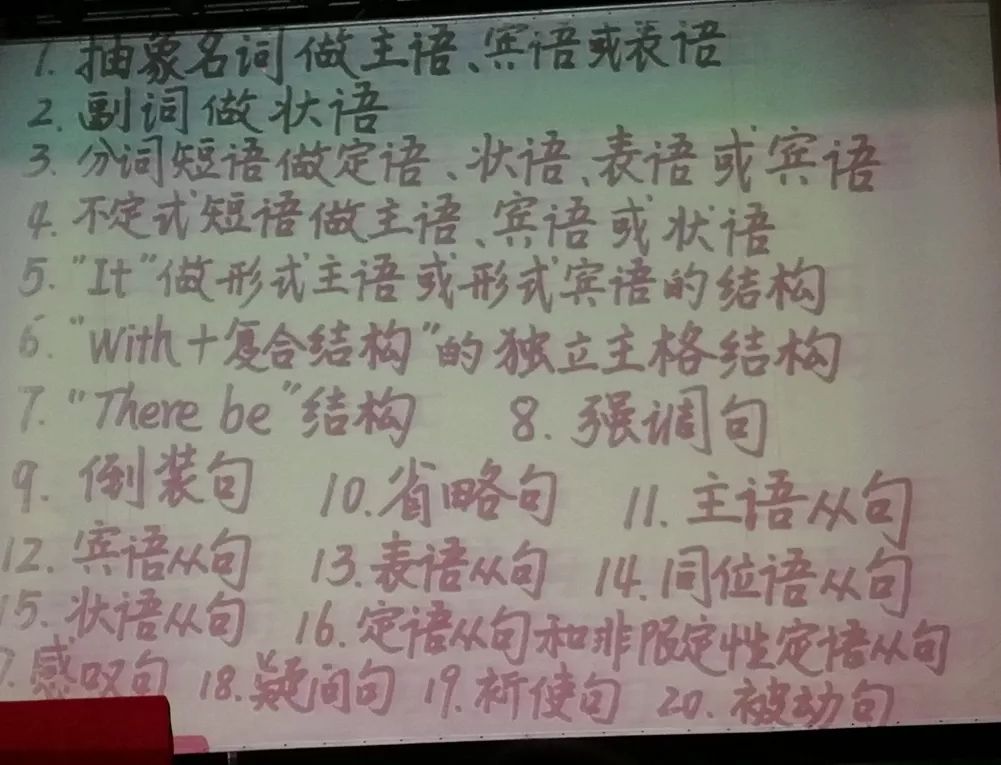 1. 抽象名词做主语、宾语或表语
2. 副词做状语
3. 分词短语做定语、状语、表语或宾语
4. 不定式短语做主语、宾语或状语
5. "It"做形式主语或形式宾语的结构
6. "With+复合结构"的独立主格结构
7. "There be"结构 8. 强调句
9. 倒装句 10. 省略句 11. 主语从句
12. 宾语从句 13. 表语从句 14. 同位语从句
15. 状语从句 16. 定语从句和非限定性定语从句
7. 感叹句 18. 疑问句 19. 祈使句 20. 被动句